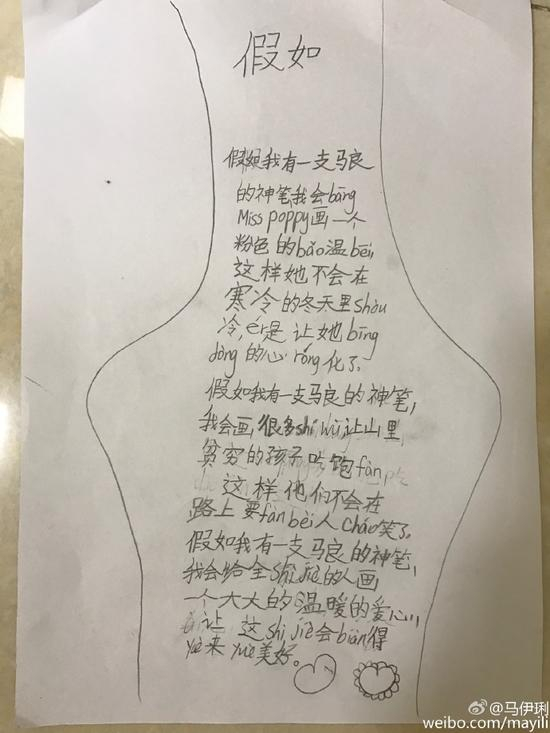 假如
假如我有一支马良
的神笔,我会bāng
Miss poppy画一个
粉色的bǎo温bēi,
这样她不会在
寒冷的冬天里shòu
冷,ér是 让她bīng
dòng的心róng化了。
假如我有一支马良的神笔,
我会画很多shí wù让山里
贫穷的孩子吃饱fàn
这样他们不会在
路上要fàn bèi人cháo笑了。
假如我有一支马良的神笔,
我会给全shì jiè的人画
一个大大的温暖的爱心,
让 这shì jiè会biàn得
yuè来yuè美好。
@马伊琍
weibo.com/mayili